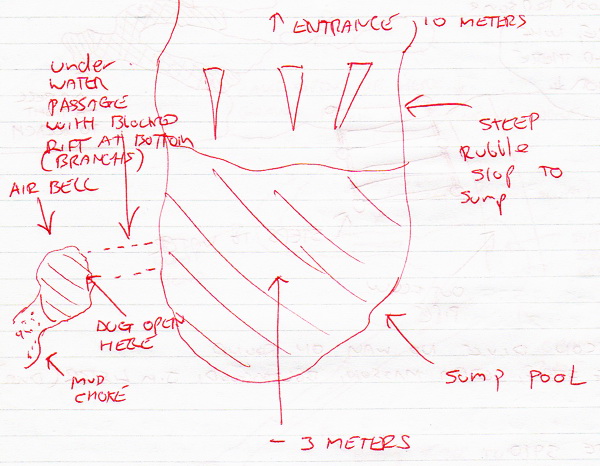 ↑ ENTRANCE 10 METERS
under
WATER
PASSAGE
WITH BLOCKED
RIFT AT BOTTOM
(BRANCHS)
AIR BELL
STEEP
Rubble
SLOP TO
Sump
DUG OPEN
HERE
MUD
CHOKE
Sump POOL
- 3 METERS